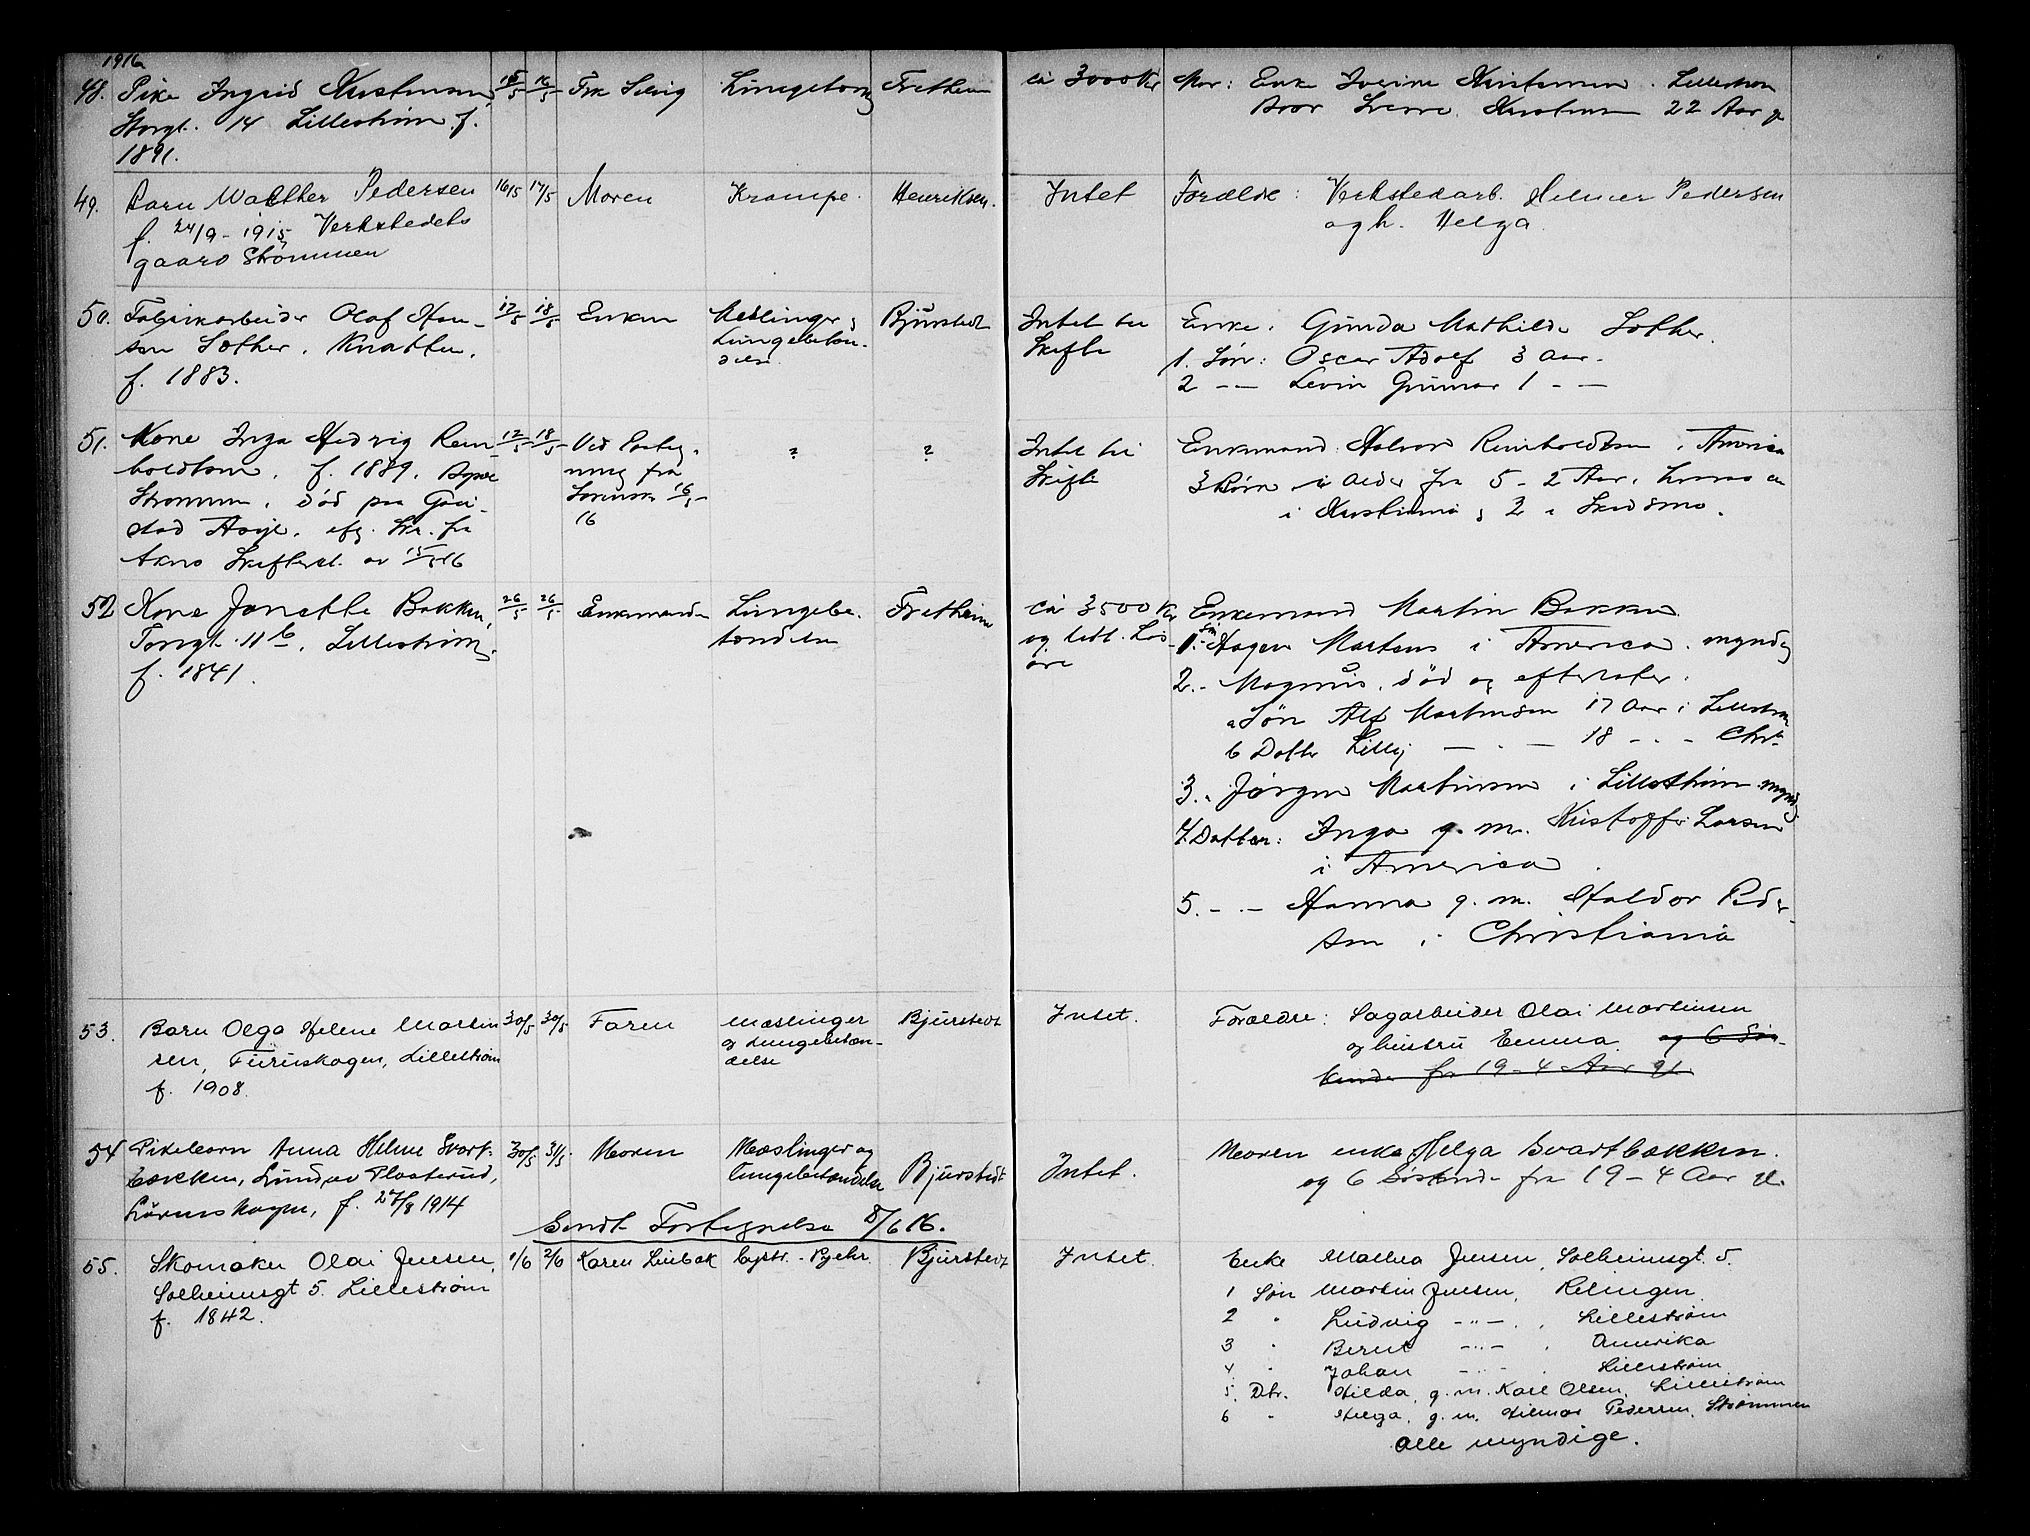 1916
48. Pike Ingrid Kristensen 15/5 16/5 Frk Selvig Lungebet. Fretheim ca 3000 Kr Mor: Enke Kristensen. Lillestrøm
Storgt. 14 Lillestrøm f. Bror Sverre Kristensen 22 Aar gl
1891.
49. Barn Walther Pedersen 16/5 17/5 Moren Krampe. Henriksen. Intet Forældre: Verkstedarb. Helmer Pedersen
f. 24/9-1915 Verkstedets og h. Helga.
gaard Strømmen
50. Fabrikarbeider Olaf Han- 17/5 18/5 Enken Meslinger & Bjürstedt Intet til Enke: Gunda Mathilde Sother.
sen Sother. Knatten. Lungebetæn- Skifte 1. Søn: Oscar Adolf 3 Aar.
f. 1883. delse 2 -- Levin Gunnar 1 - -
51. Kone Inga Hedvig Rein- 12/5 18/5 Ved ? ? Intet til Enkemand Halvor Reinholdtsen i America
holdtsen. f. 1889. ning fra Skifte 3 Børn i Alder fra 5 - 2 Aar.
Strømmen. død paa Gau- 16/5 i Kristiania & 2 i Skedsmo.
stad Asyl. efg. Skr. fra 16
Akers Skifteret. av 15/5 16
52 Kone Janette Bakken, 26/5 26/5 Enkemanden Lungebe- Fretheim ca 3500 Kr Enkemand Martin Bakken
Torvgt. 11 b. Lillestrøm. tændelse og lidt Løs- 1. Søn Hagen Martens i America. myndig
f. 1841. øre 2. - Magnus. død og efterlater:
a Søn Alf Martinsen 17 Aar i Lillestrøm
b Datter Lilly - . - 18 - . - Chr.
3. " Jørgen Martinsen i Lillestrøm myndig
4. Datter: Inga g. m. Kristoffer Larsen
i America.
5. - . - Hanna g. m. Haldor Peder-
sen i Christiania
53. Barn Olga Helene Martin 30/5 30/5 Faren Mæslinger Bjürstedt Intet. Forældre: Sagarbeider Olai Martinsen
sen, Furuskogen, Lillestrøm og Lungebetæn- og hustru Emma. og 6 Søs-
f. 1908. delse kende fra 19 - 4 Aar gl.
54 Pikebarn Anna Helene Svart- 30/5 31/5 Moren Mæslinger og Bjürstedt Intet. Moren enke Helga Svartbakken.
bakken, Lund av Flaaterud, lungebetændelse og 6 Søskende fra 19 - 4 Aar gl.
Lørenskogen, f. 27/8 1914
Sendt Fortegnelse 8/6 16.
55. Skomaker Olai Jensen, 1/6 2/6 Karen Linbak Bjürstedt Intet. Enke Mathea Jensen, Solheimsgt. 5.
Solheimsgt 5. Lillestrøm 1 Søn Martin Jensen, Relingen
f. 1842. 2 " Ludvig - " - . , Lillestrøm
3 " Bernt - " - , Amerika
4. " Johan - " - . Lillestrøm
5. Dtr. Hilda, g. m. Karl Olsen, Lillestrøm
6 " Helga, g. m. Hilmar Pedersen, Strømmen
alle myndige.